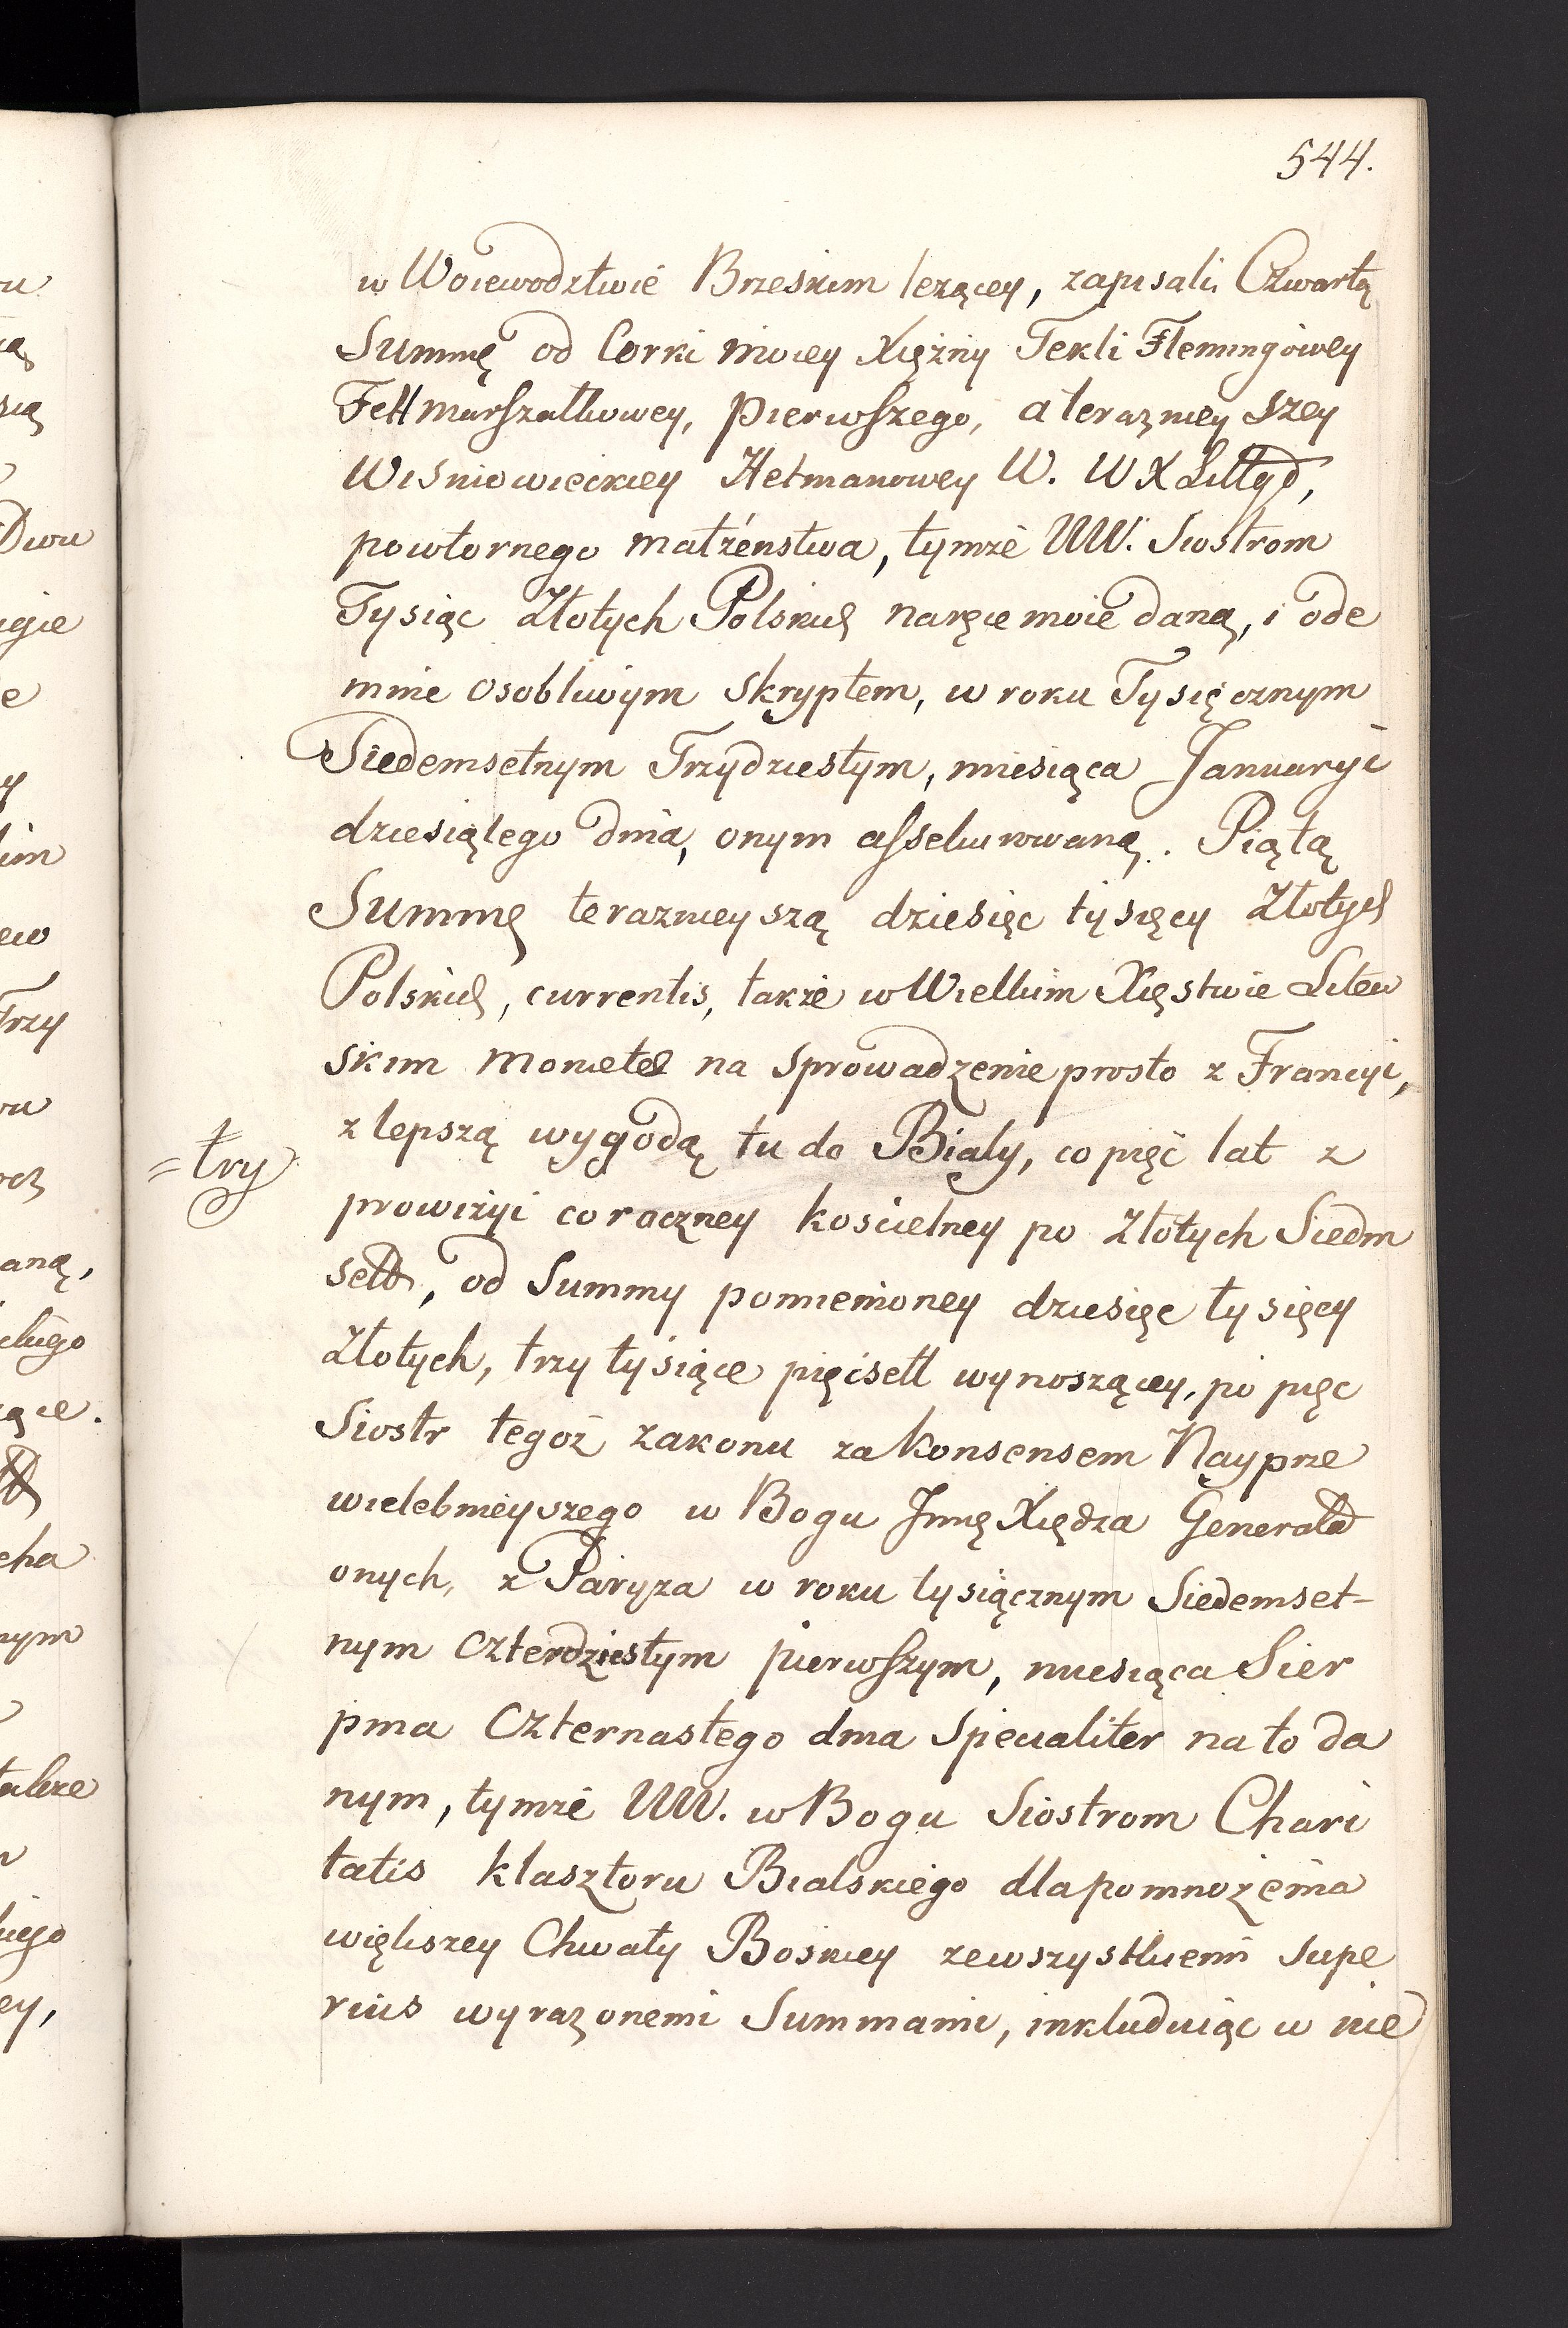 544.
w Woiewodztwie Brzeskim leżącey, zapisali. Czwartą
Summę od Corki moiey Xiężny Tekli Flemingowey
Feltmarszałkowey, pierwszego, a teraznieyszey
Wisniowieckiey Hetmanowey W. W X Litt
powtornego małżenstwa, tymże WW. Siostrom
Tysiąc Złotych Polskich naręcemoie daną, i ode
mnie osobliwym skryptem, w roku Tysięcznym
Siedemsetnym Trzydziestym, miesiąca Januaryi
dziesiątego dnia, onym assekurowaną. Piątą
Summę teraznieyszą dziesięc tysięcy Złotych
Polskich, currentis, także w Wielkim Xięstwie Litew
skim monetae na sprowadzenie prosto z Francyi,
z lepszą wygodą tu do Biały, co pięć lat z
=try
prowizyi coroczney koscielney po Złotych Siedm
sett, od Summy pomienioney dziesięc tysięcy
Złotych, trzy tysiące pięcsett wynoszącey, po pięc
Siostr tegoż zakonu za Konsensem Nayprze
wielebnieyszego w Bogu Jmę Xiędza Generała
onych, z Paryza w roku tysiącznym Siedemset-
nym czterdziestym pierwszym, miesiąca Sier
pnia Czternastego dnia specialiter na to da
nym, tymże WW. w Bogu Siostrom Chari
tatis klasztoru Bialskiego dla pomnożenia
większey Chwały Boskiey zewszystkiemi supe
rius wyrazonemi Summami, inkluduiąc w nie